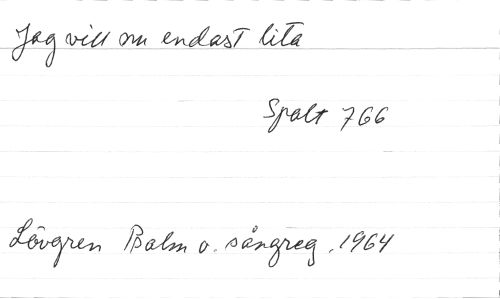 Jag vill nu endast lita
Spalt 766
Lövgren Psalm o. sångreg. 1964